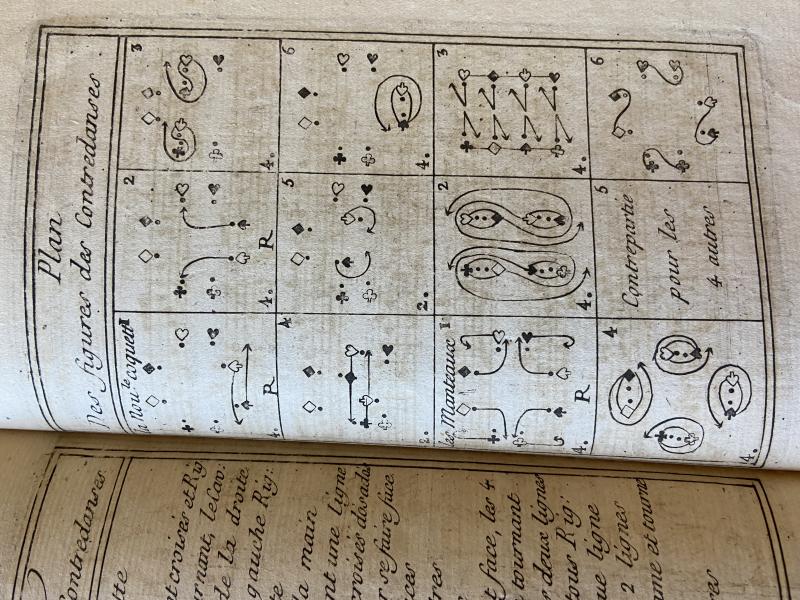 Contredanses
et croisés et Rig
le Cav:
de la droite
gauche Rig:
la main
une ligne
croisés dos a dos
se faire face
face, les 4
tournant
deux lignes
tous Rig:
ligne
2 lignes
et tourne
Plan
Des figures des Contredanses
la Nou.le coquette 1
2
3
4. R
4. R
4.
4
5
6
2.
2.
4.
les Manteaux 1
2
3
4. R
4.
4.
4
5
6
Contrepartie
pour les
4 autres
4.